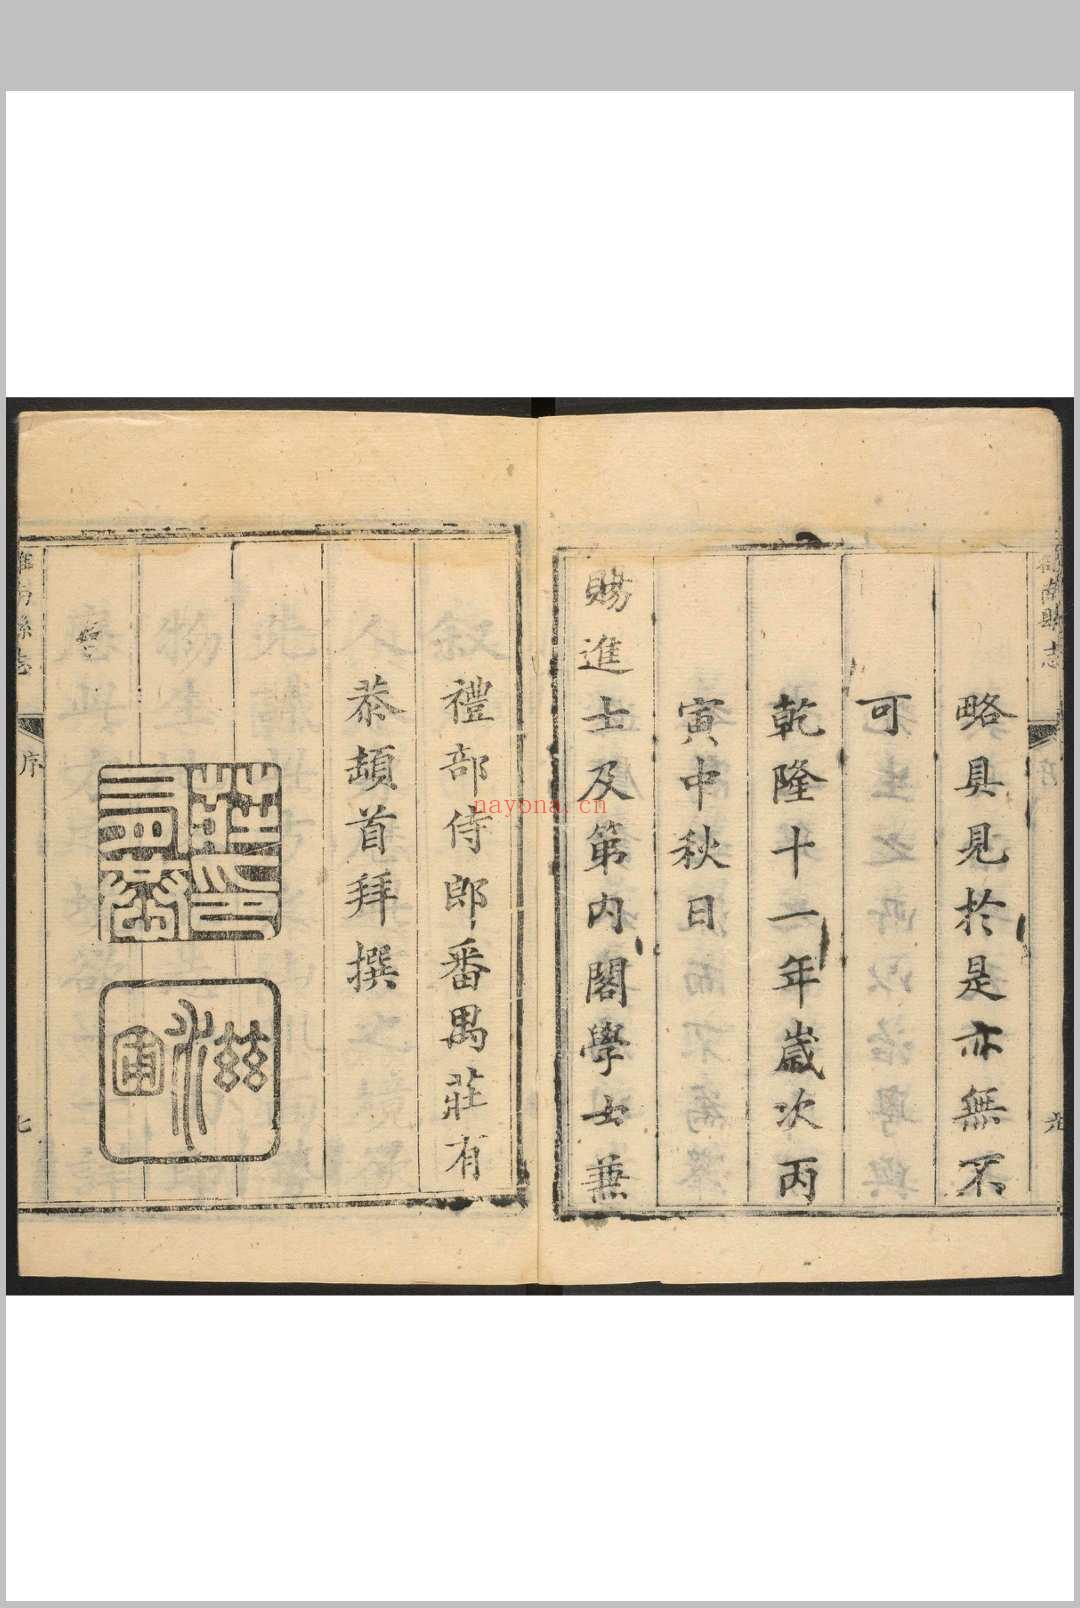 略具見於是亦無不
可
乾隆十一年歲次丙
寅中秋日
賜進士及第內閣學士兼
禮部侍郎番禺莊有
恭頓首拜撰
莊有恭印
滋圃
南縣志
序
七
nayona.cn